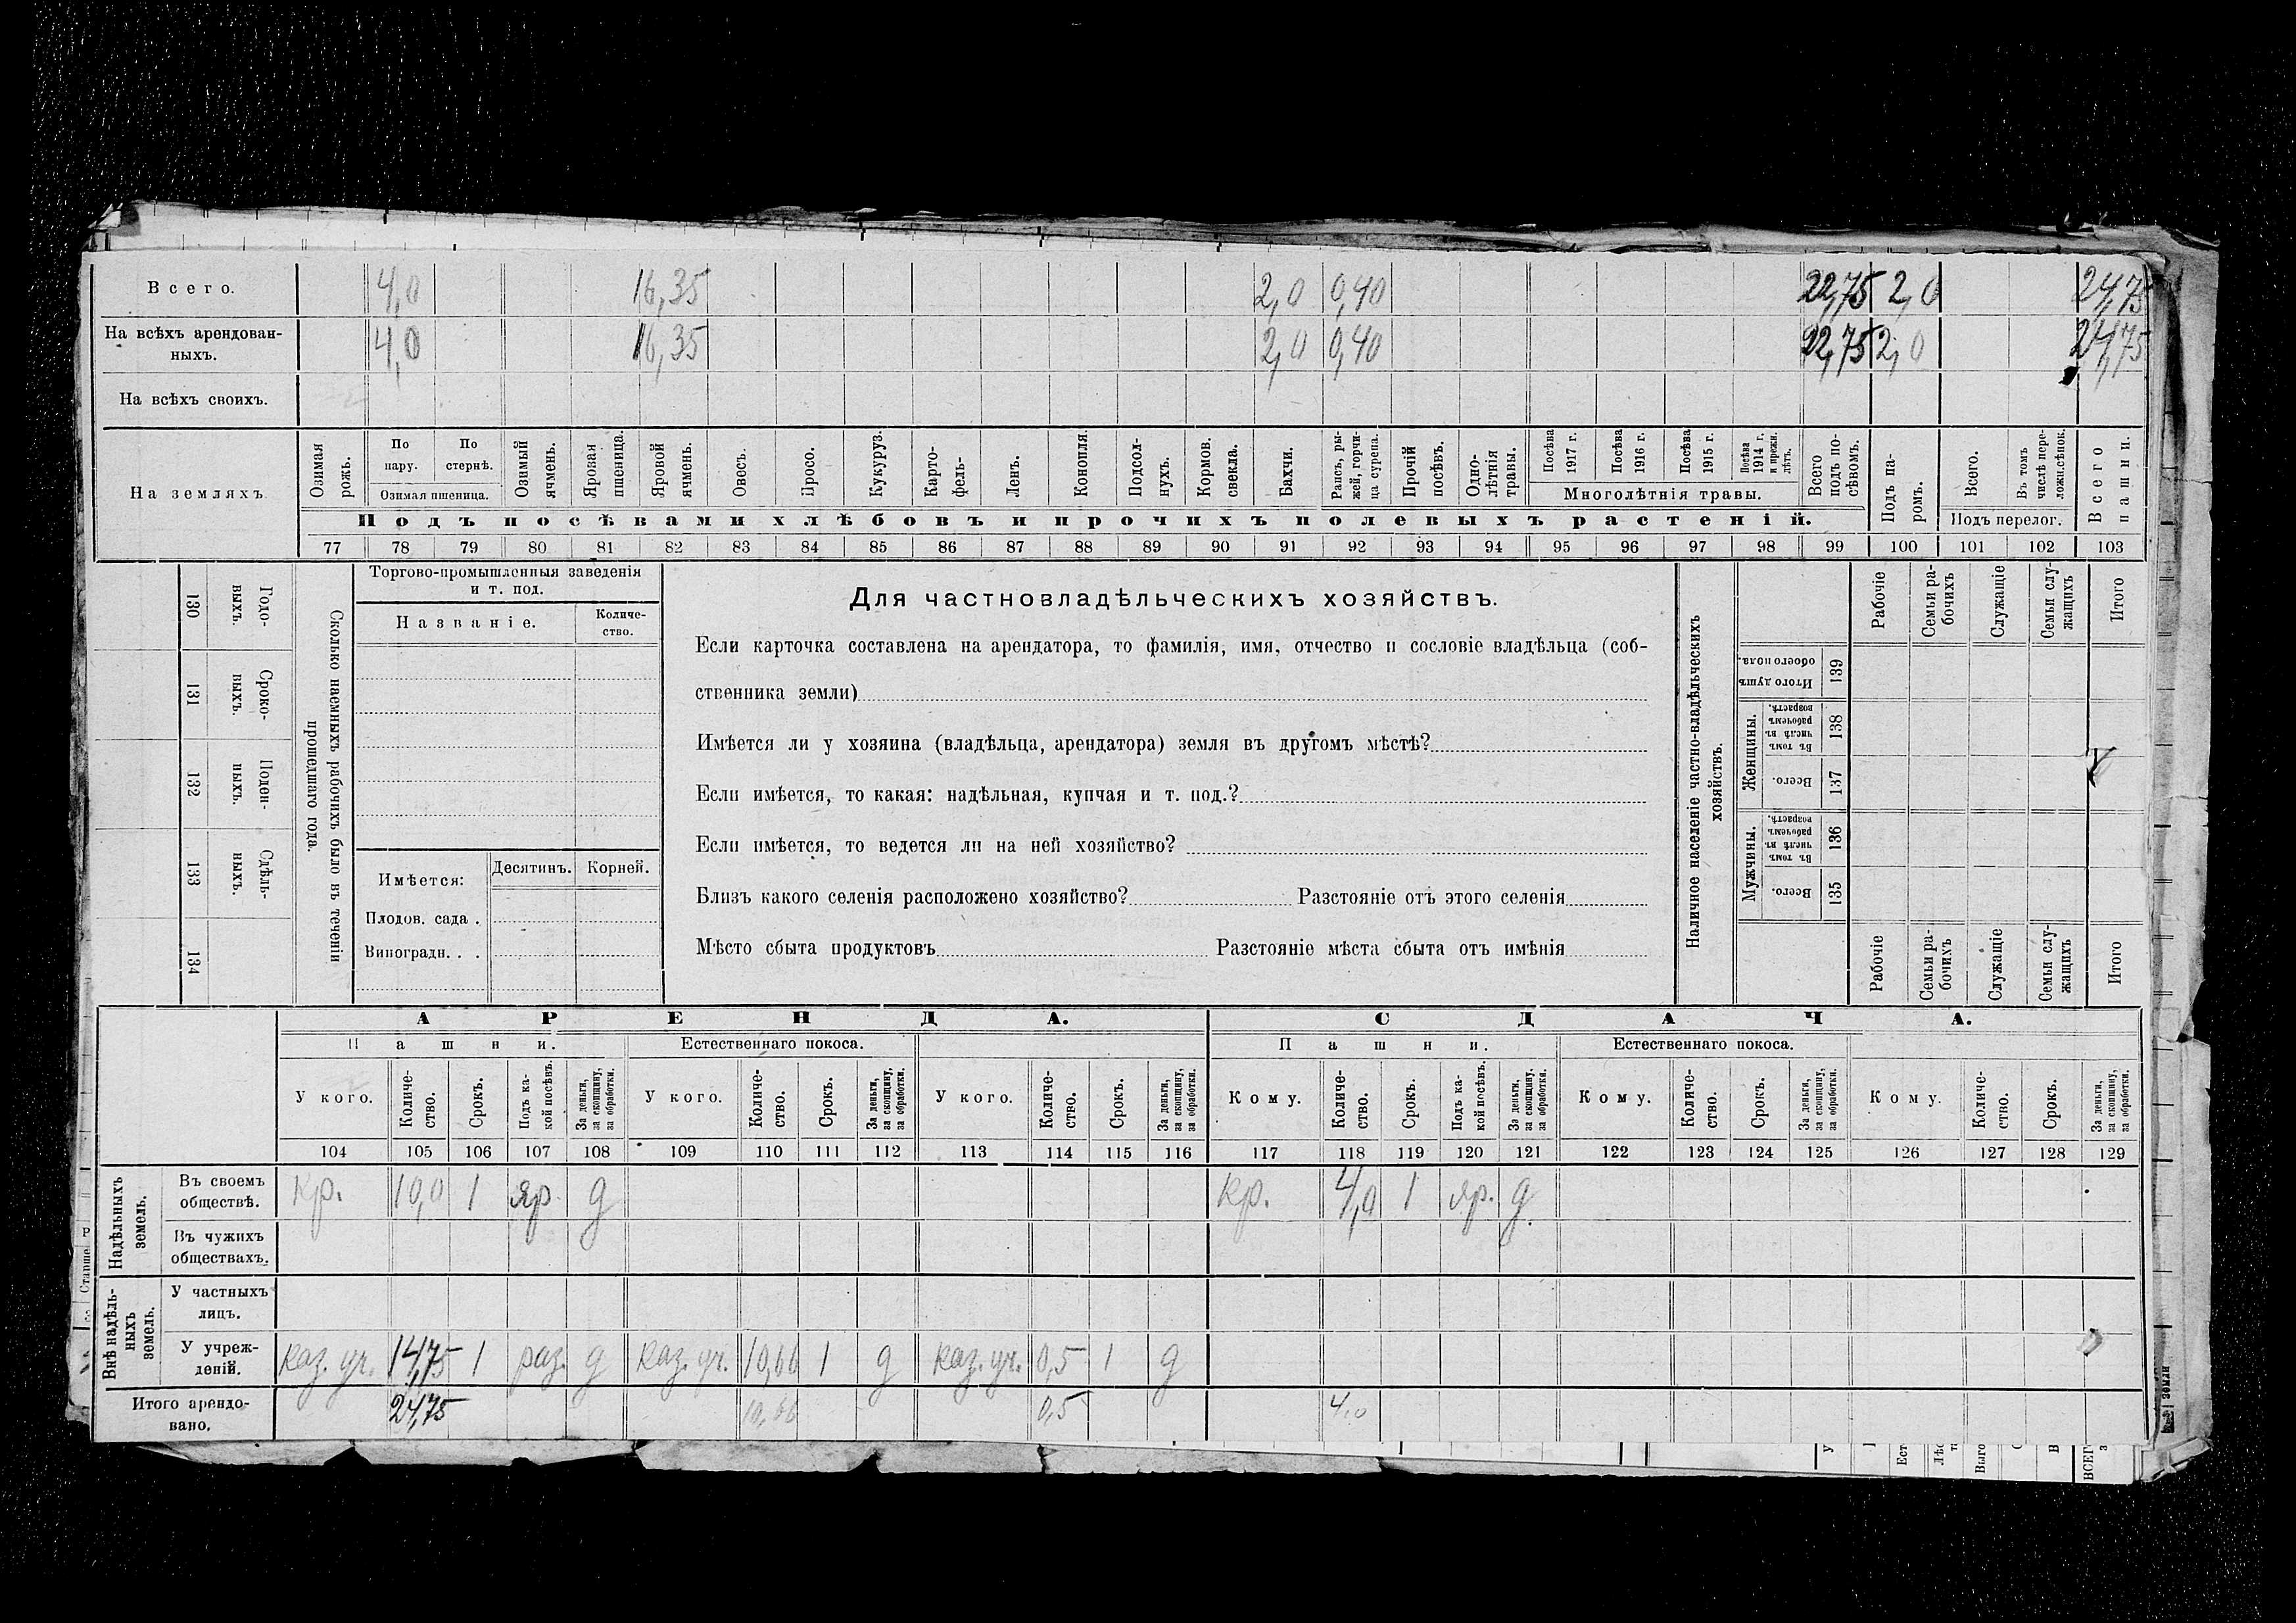 Всего. 4,0 16,35 2,0 0,40 22,75 2,0 24,75
На всѣхъ арендован-
ныхъ. 4,0 16,35 2,0 0,40 22,75 2,0 24,75
На всѣхъ своихъ.
На земляхъ
Озимая рожь.
По пару.
По стернѣ.
Озимая пшеница.
Озимый ячмень.
Яровая пшеница.
Яровой ячмень.
Овесъ.
Просо.
Кукуруз.
Карто-
фель-
Ленъ.
Конопля.
Подсол-
нухъ.
Кормов. свекла.
Бахчи.
Рапсъ, ры-
жей, горчи-
ца сурепа.
Прочій посѣвъ.
Одно-
лѣтнія травы.
Посѣва 1917 г.
Посѣва 1916 г.
Посѣва 1915 г.
Посѣва 1914 г. и прежн. лѣтъ.
Многолѣтнія травы.
Всего подъ по-
сѣвомъ.
Подъ па-
ромъ.
Всего.
Въ томъ числѣ пере-
ложн.сѣнок.
Подъ перелог.
Всего пашни.
Подъ посѣвами хлѣбовъ и прочихъ полевыхъ растеній.
77 78 79 80 81 82 83 84 85 86 87 88 89 90 91 92 93 94 95 96 97 98 99 100 101 102 103
130 Годо-
выхъ.
131 Сроко-
ныхъ.
132 Поден-
ныхъ.
133 Сдѣль-
ныхъ.
134
Сколько наемныхъ рабочихъ было въ теченіи
прошедшаго года.
Торгово-промышленныя заведенія
и т. под.
Названіе.
Количе-
ство.
Имѣется:
Десятинъ. Корней.
Плодов. сада .
Виноградн. . .
Для частновладѣльческихъ хозяйствъ.
Если карточка составлена на арендатора, то фамилія, имя, отчество и сословіе владѣльца (соб-
ственника земли)
Имѣется ли у хозяина (владѣльца, арендатора) земля въ другомъ мѣстѣ?
Если имѣется, то какая: надѣльная, купчая и т. под.?
Если имѣется, то ведется ли на ней хозяйство?
Близъ какого селенія расположено хозяйство? Разстояніе отъ этого селенія
Мѣсто сбыта продуктовъ Разстояніе мѣста сбыта отъ имѣнія
Наличное населеніе частно-владѣльческихъ
хозяйствъ.
Рабочіе
Семьи ра-
бочихъ
Служащіе
Семьи слу-
жащихъ
Итого
Итого душъ обоего пола. 139
Женщины.
Въ томъ числѣ въ рабочемъ возрастѣ. 138
Всего. 137
Мужчины.
Въ томъ числѣ въ рабочемъ возрастѣ. 136
Всего. 135
Рабочіе
Семьи ра-
бочихъ
Служащіе
Семьи слу-
жащихъ
Итого
АРЕНДА. СДАЧА.
Пашни. Естественнаго покоса. Пашни. Естественнаго покоса.
У кого.
Количе-
ство.
Срокъ.
Подъ ка-
кой посѣвъ.
За деньги,
за скопщину,
за обработки.
У кого.
Количе-
ство.
Срокъ.
За деньги,
за скопщину,
за обработки.
У кого.
Количе-
ство.
Срокъ.
За деньги,
за скопщину,
за обработки.
Кому.
Количе-
ство.
Срокъ.
Подъ ка-
кой посѣвъ.
За деньги,
за скопщину,
за обработки.
Кому.
Количе-
ство.
Срокъ.
За деньги,
за скопщину,
за обработки.
Кому.
Количе-
ство.
Срокъ.
За деньги,
за скопщину,
за обработки.
104 105 106 107 108 109 110 111 112 113 114 115 116 117 118 119 120 121 122 123 124 125 126 127 128 129
Надѣльныхъ
земель.
Въ своемъ
обществѣ. кр. 10,0 1 яр. д кр. 4,0 1 яр. д.
Въ чужихъ
обществахъ.
Внѣ надѣль-
ныхъ
земель.
У частныхъ
лицъ.
У учреж-
деній. каз. уч. 14,75 1 раз. д каз. уч. 10,66 1 д каз. уч. 0,5 1 д
Итого арендо-
вано. 24,75 10,66 0,5 4,0